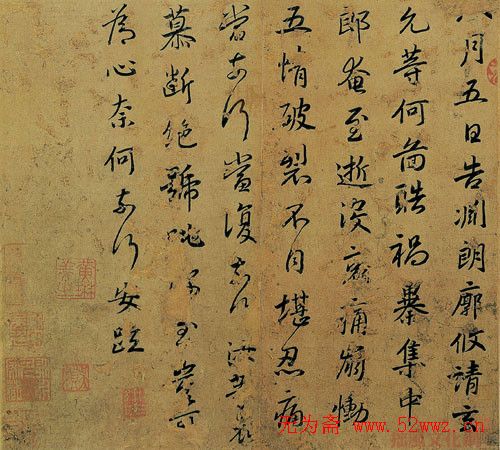 八月五日告淵朗廓攸靖玄
允等何圖酷禍暴集中
郎奄至逝没哀痛崩慟
五情破裂不自堪忍痛
當奈何當復奈何汝等哀
慕斷絶號咷深至豈可
為心奈何奈何安疏
无为斋 www.52wwz.cn